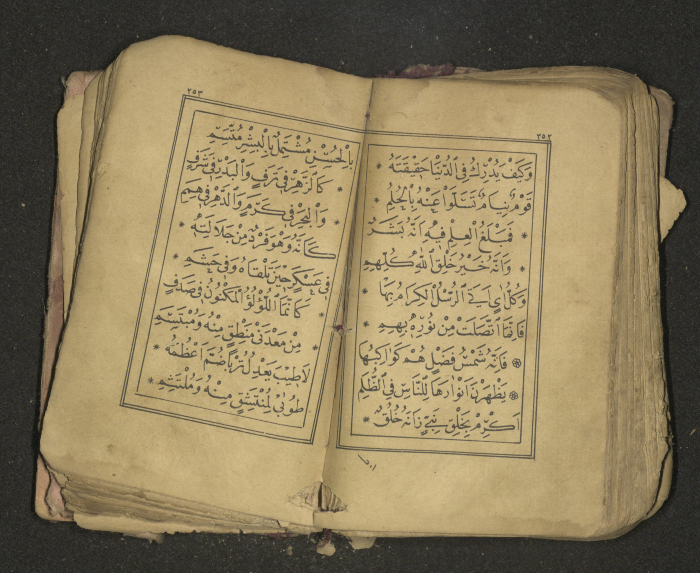 ٢٥٢
وَكَيْفَ يُدْرِكُ فِى الدُّنْيَا حَقِيقَتَهُ *
قَوْمٌ نِيَامٌ تَسَلَّوْا عَنْهُ بِالْحُلُمِ *
* فَمَبْلَغُ الْعِلْمِ فِيهِ اَنَّهُ بَشَرٌ
* وَاَنَّهُ خَيْرُ خَلْقِ اللّٰهِ كُلِّهِمِ
* وَكُلُّ اٰيٍ اَتَى الرُّسْلُ الْكِرَامُ بِهَا
* فَاِنَّمَا اتَّصَلَتْ مِنْ نُورِهِ بِهِمِ *
* فَاِنَّهُ شَمْسُ فَضْلٍ هُمْ كَوَاكِبُهَا
* يُظْهِرْنَ اَنْوَارَهَا لِلنَّاسِ فِى الظُّلَمِ
اَكْرِمْ بِخَلْقِ نَبِيٍّ زَانَهُ خُلُقٌ *
٢٥٣
بِالْحُسْنِ مُشْتَمِلٍ بِالْبِشْرِ مُتَّسِمِ
* كَالزَّهْرِ فِى تَرَفٍ وَالْبَدْرِ فِى شَرَفٍ
* وَالْبَحْرِ فِى كَرَمٍ وَالدَّهْرِ فِى هِمَمِ
كَاَنَّهُ وَهْوَ فَرْدٌ مِنْ جَلَالَتِهِ *
فِى عَسْكَرٍ حِينَ تَلْقَاهُ وَفِى حَشَمِ *
* كَاَنَّمَا اللُّؤْلُؤُ الْمَكْنُونُ فِى صَدَفٍ
* مِنْ مَعْدِنَىْ مَنْطِقٍ مِنْهُ وَمُبْتَسَمِ
لَاطِيبَ يَعْدِلُ تُرْبًا ضَمَّ اَعْظُمَهُ *
طُوبٰى لِمُنْتَشِقٍ مِنْهُ وَمُلْتَثِمِ *